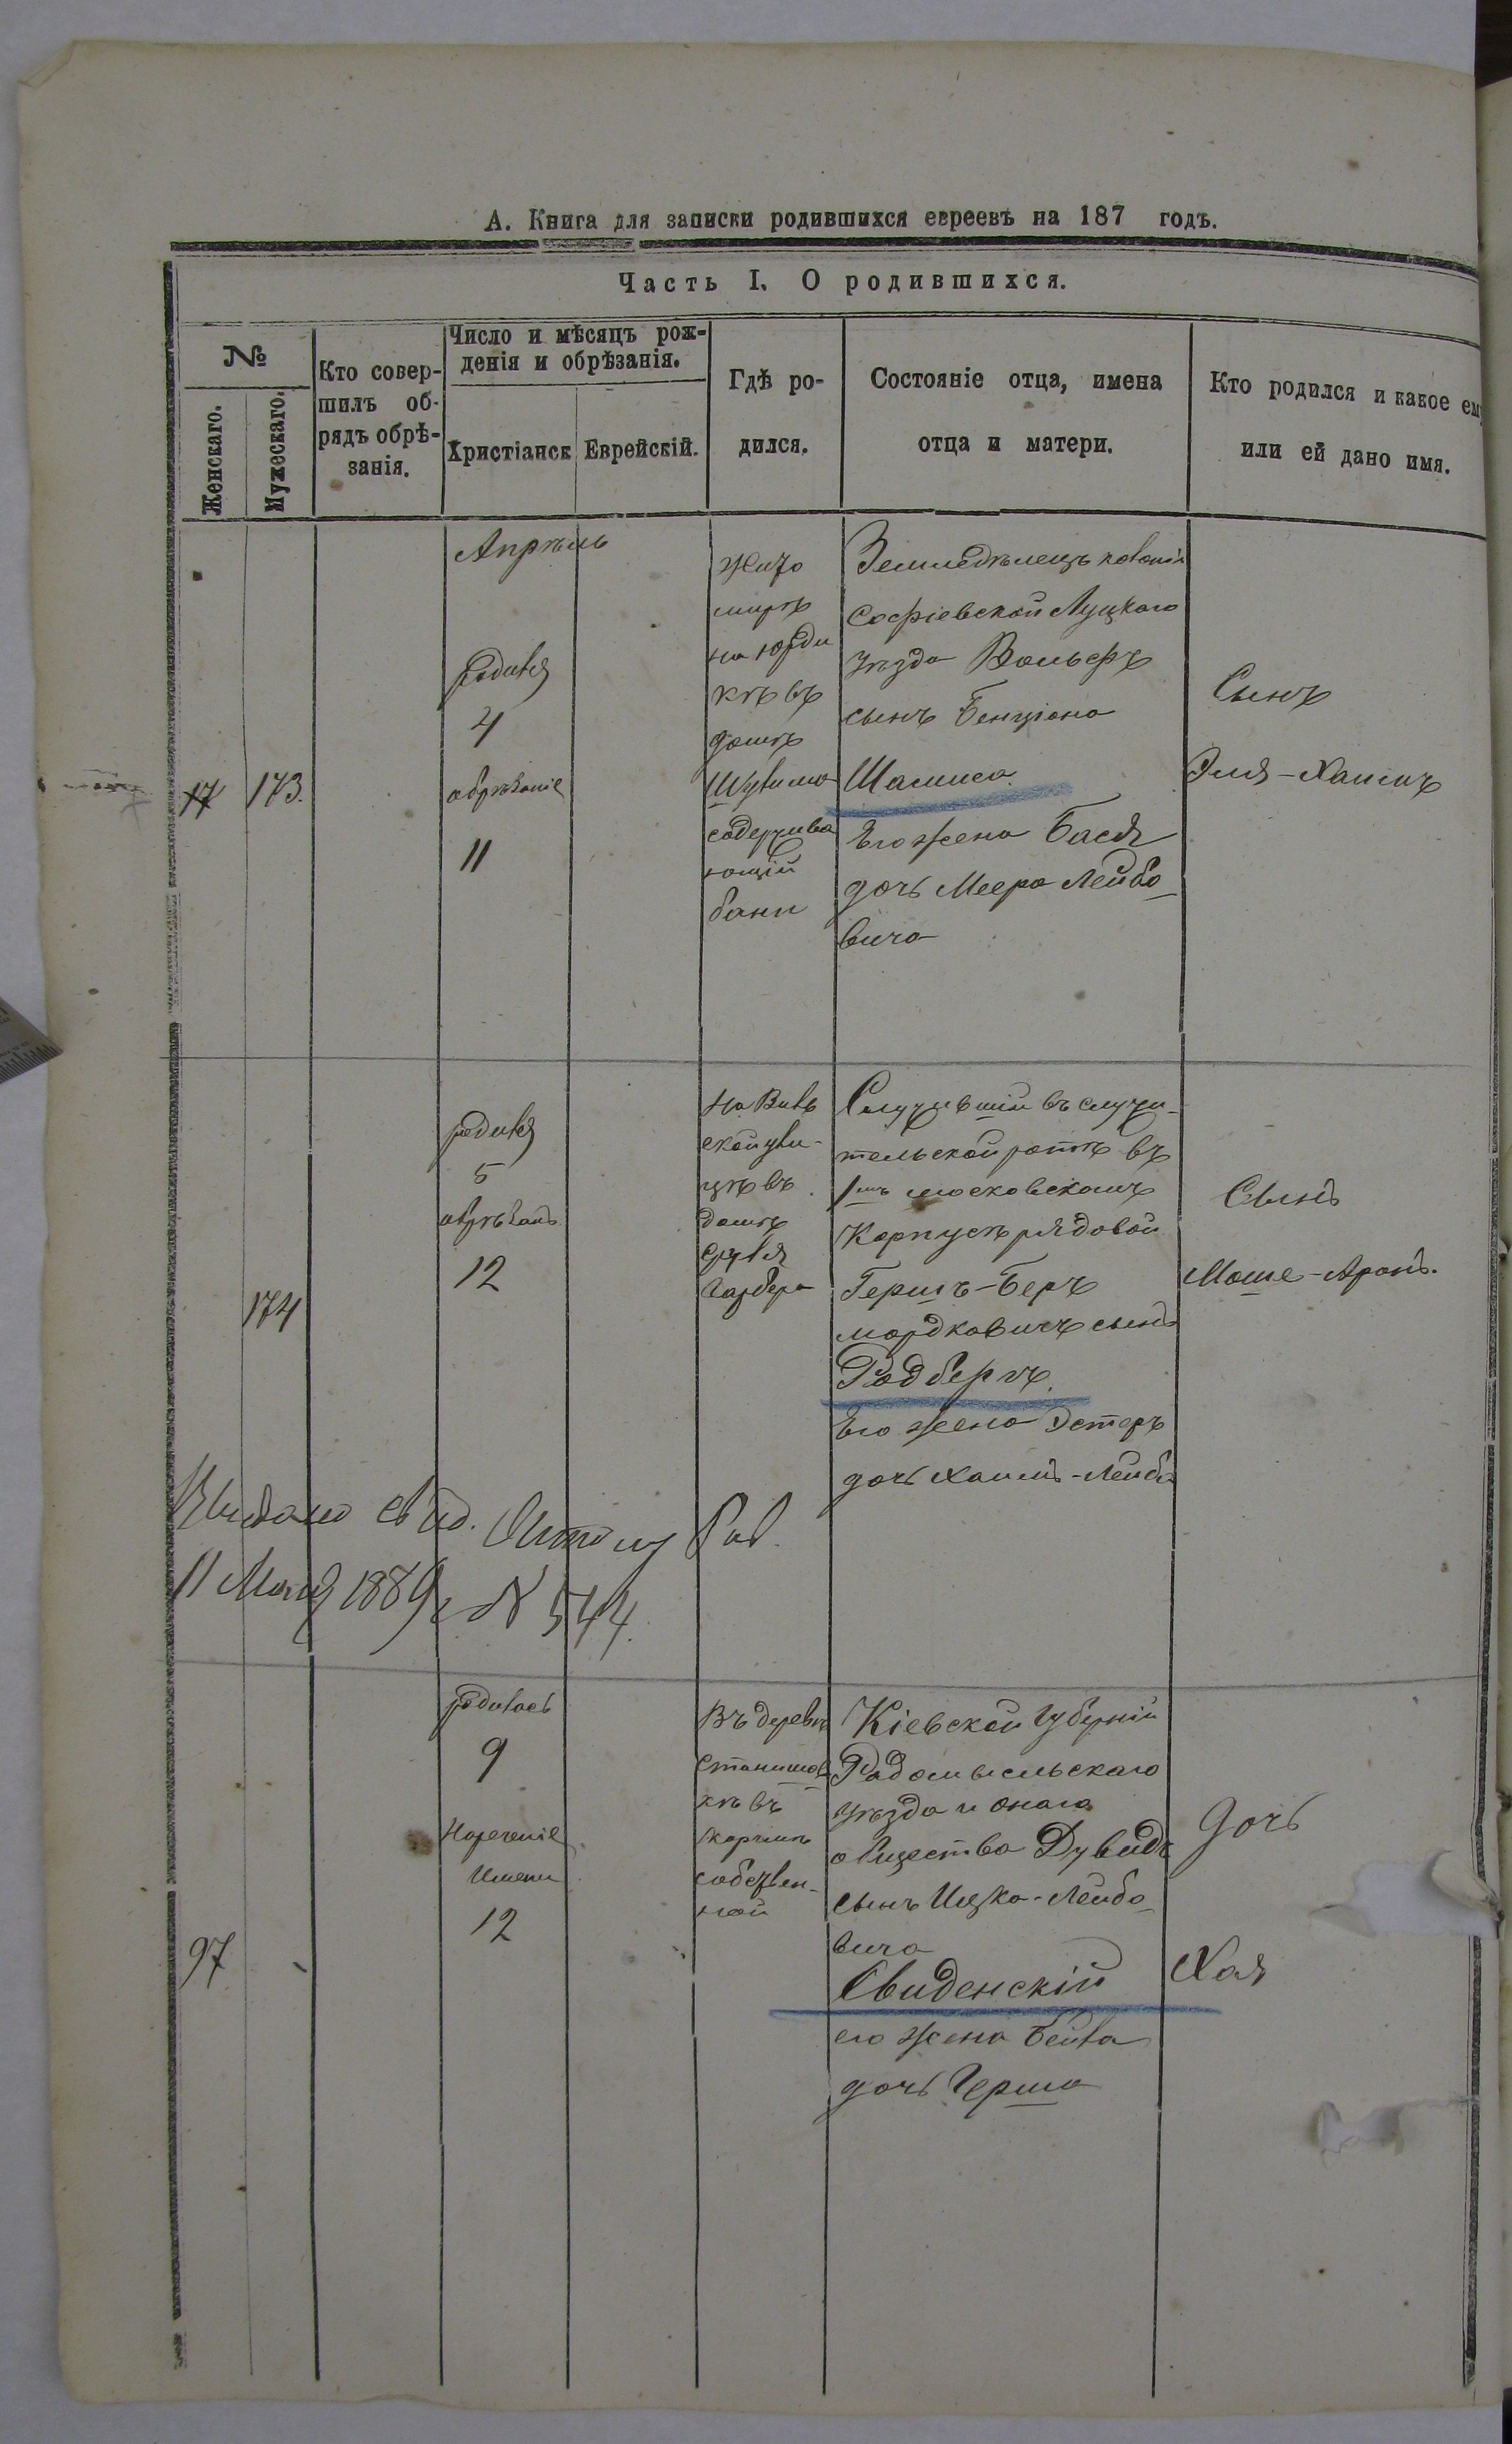 А. Книга для записки родившихся евреевъ на 187 годъ.
Часть I. О родившихся.
№
Женскаго.
Мужескаго.
Кто совер-
шилъ об-
рядъ обрѣ-
занія.
Число и мѣсяцъ рож-
денія и обрѣзанія.
Христіанск
Еврейскій.
Гдѣ ро-
дился.
Состояніе отца, имена
отца и матери.
Кто родился и какое ему
или ей дано имя.
17
173.
Апрѣль
родився
4
обрѣзаніе
11
Жито
мирѣ
на юрди
кѣ въ
домѣ
содержива
ющій
бани
Земледѣлецъ колоніи
Софіевской Луцкаго
уѣзда Вольфъ
сынъ Бенціона
Шамиса
Его жена Бася
дочь Меера Лейбо
вича
Сынъ
Эля-Хаимъ
174
родився
5
обрѣзанъ
12
На Виль
ской ули-
цѣ въ
домѣ
Сруля
Гарбера
Служившій въ служи-
тельской ротѣ въ
1мъ московскомъ
Корпусѣ рядовой
Гершъ-Беръ
мордковичъ сынъ
Родбергъ
Его жена Эстеръ
дочь Хаимъ-Лейба
Сынъ
Моше-Аронъ.
Выдано свид. Рав.
11 Мая 1889 г № 544.
97
родилась
9
Нареченіе
Имени
12
Въ деревнѣ
Станишов
кѣ въ
корчмѣ
собствен-
ной
Кіевской губерніи
Радомысльскаго
уѣзда и онаго
общества Дувидъ
сынъ Ицко-Лейбо
вича
Свиденскій
его жена Бейла
дочь Герша
Дочь
Хая